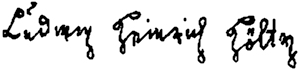 Ludwig Heinrich Hölty